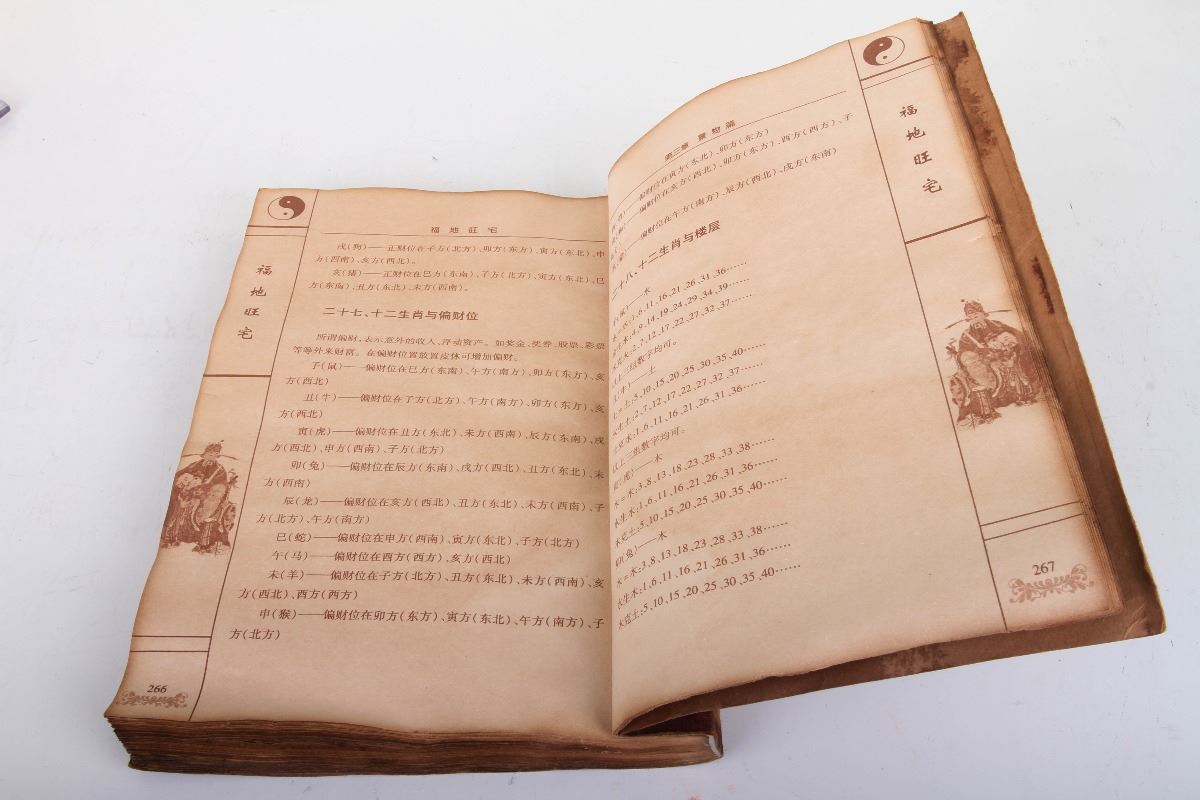 福地旺宅
福地旺宅
戌(狗)——正财位在子方(北方)、卯方(东方)、寅方(东北)、申
方(西南)、亥方(西北)。
亥(猪)——正财位在巳方(东南)、子方(北方)、寅方(东北)、巳
方(东南)、丑方(东北)、未方(西南)。
二十七、十二生肖与偏财位
所谓偏财,表示意外的收入、浮动资产。如奖金、奖券、股票、彩票
等等外来财富。在偏财位置放置皮休可增加偏财。
子(鼠)——偏财位在巳方(东南)、午方(南方)、卯方(东方)、亥
方(西北)
丑(牛)——偏财位在子方(北方)、午方(南方)、卯方(东方)、亥
方(西北)
寅(虎)——偏财位在丑方(东北)、未方(西南)、辰方(东南)、戌
方(西北)、申方(西南)、子方(北方)
卯(兔)——偏财位在辰方(东南)、戌方(西北)、丑方(东北)、未
方(西南)
辰(龙)——偏财位在亥方(西北)、丑方(东北)、未方(西南)、子
方(北方)、午方(南方)
巳(蛇)——偏财位在申方(西南)、寅方(东北)、子方(北方)
午(马)——偏财位在酉方(西方)、亥方(西北)
未(羊)——偏财位在子方(北方)、丑方(东北)、未方(西南)、亥
方(西北)、酉方(西方)
申(猴)——偏财位在卯方(东方)、寅方(东北)、午方(南方)、子
方(北方)
266
第三章 景物篇
偏财位在寅方(东北)、卯方(东方)
偏财位在亥方(西北)、卯方(东方)、酉方(西方)、子
偏财位在午方(南方)、辰方(西北)、戌方(东南)
二十八、十二生肖与楼层
——水
1、6、11、16、21、26、31、36……
4、9、14、19、24、29、34、39……
2、7、12、17、22、27、32、37……
以上三组数字均可。
(牛)——土
土=土:5、10、15、20、25、30、35、40……
2、7、12、17、22、27、32、37……
土克水:1、6、11、16、21、26、31、36……
以上三组数字均可。
(虎)——木
木=木:3、8、13、18、23、28、33、38……
水生木:1、6、11、16、21、26、31、36……
木克土:5、10、15、20、25、30、35、40……
卯(兔)——木
木=木:3、8、13、18、23、28、33、38……
水生木:1、6、11、16、21、26、31、36……
木克土:5、10、15、20、25、30、35、40……
福地旺宅
267